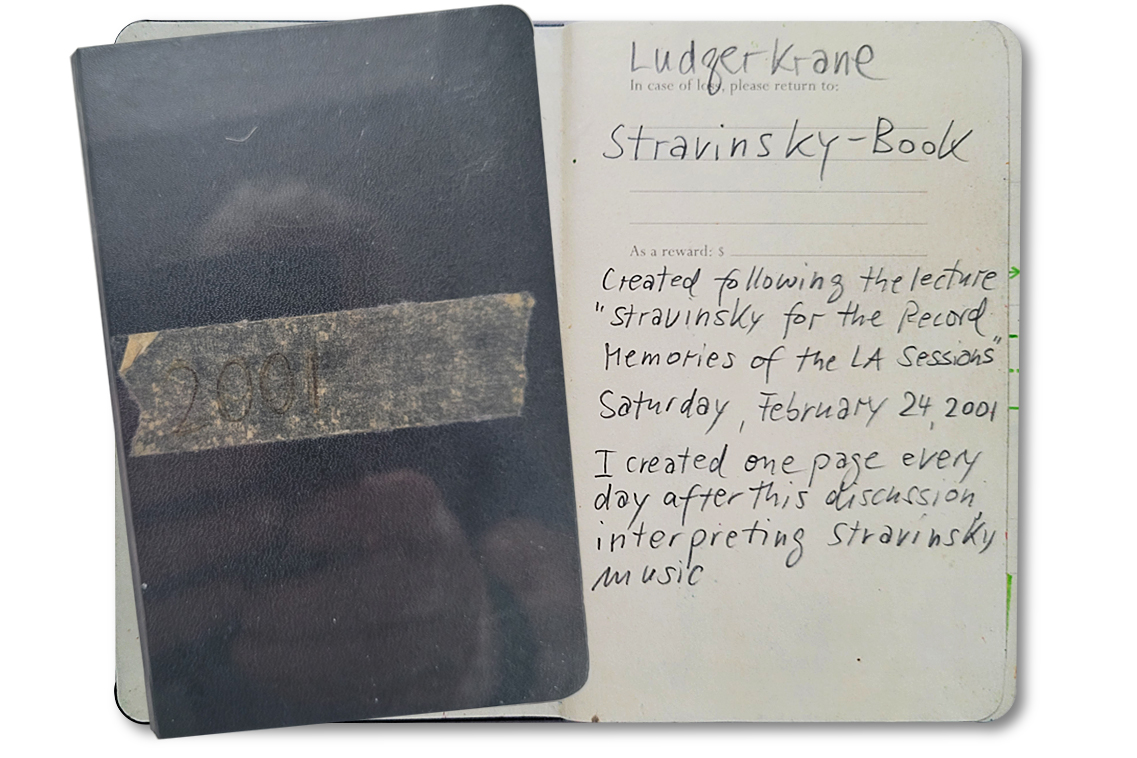 2001
Ludger Krane
In case of loss, please return to:
Stravinsky-Book
As a reward: $
Created following the lecture
"Stravinsky for the Record
Memories of the LA Sessions"
Saturday, February 24, 2001
I created one page every
day after this discussion,
interpreting Stravinsky
music